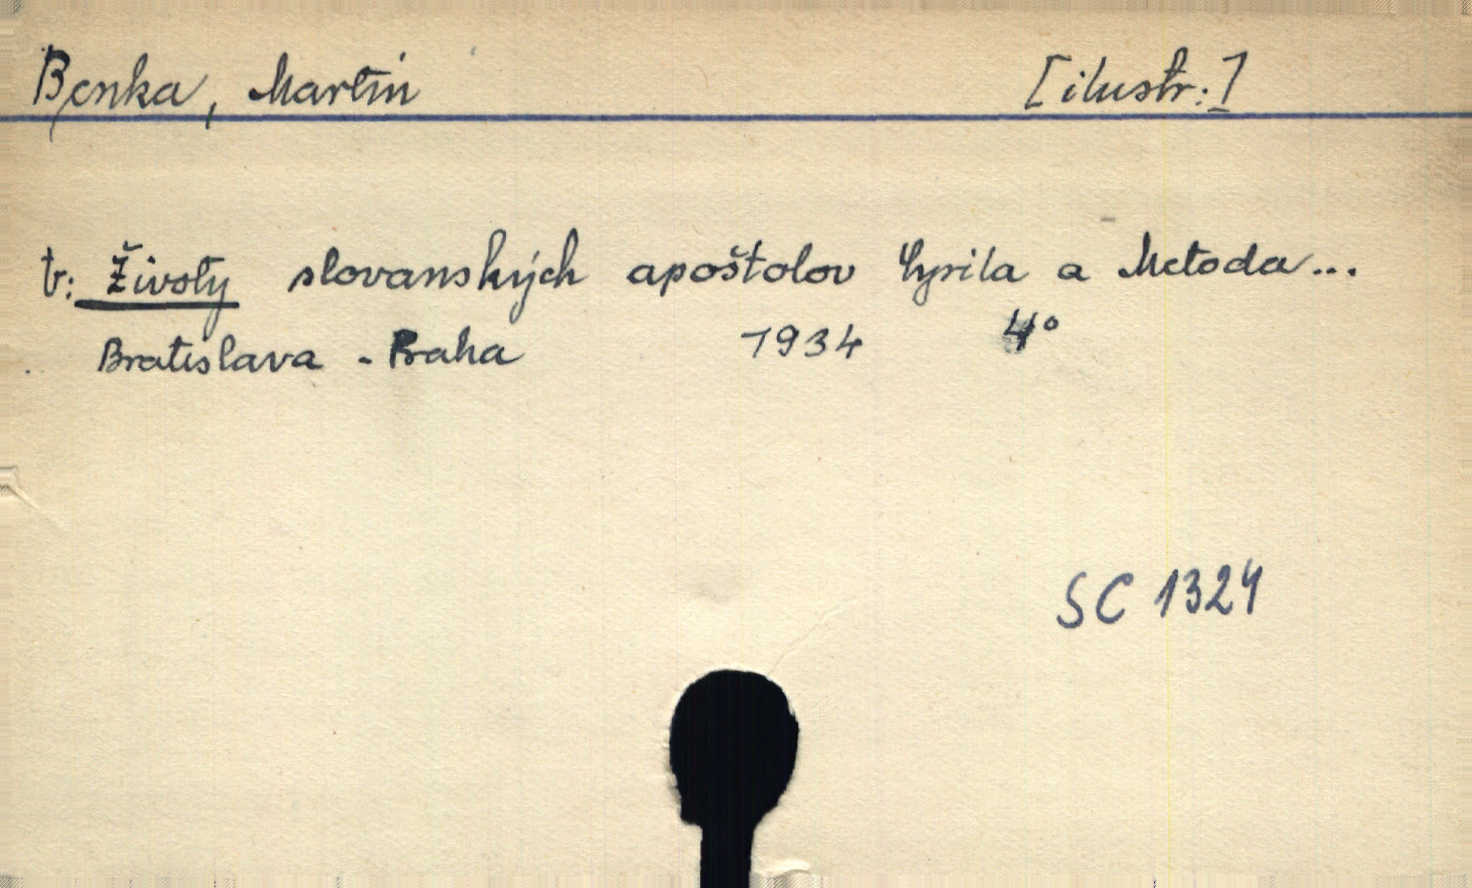 Benka, Martin [ilustr:]
v: Životy slovanských apoštolov Cyrila a Metoda...
Bratislava - Praha 1934 4°
SC 1324